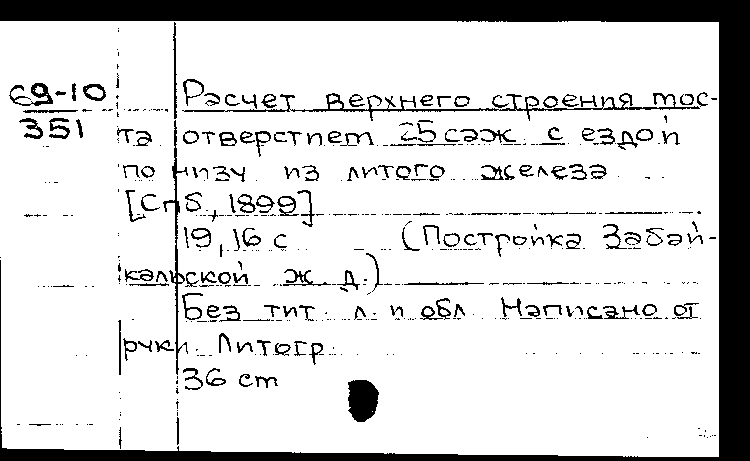 69-10
351
Расчет верхнего строения мос-
та отверстием 25 саж с ездой
по низу из литого железа
[Спб, 1899]
19, 16 с (Постройка Забай-
кальской ж. д.)
Без тит. л. и обл Написано от
руки. Литогр.
36 cm